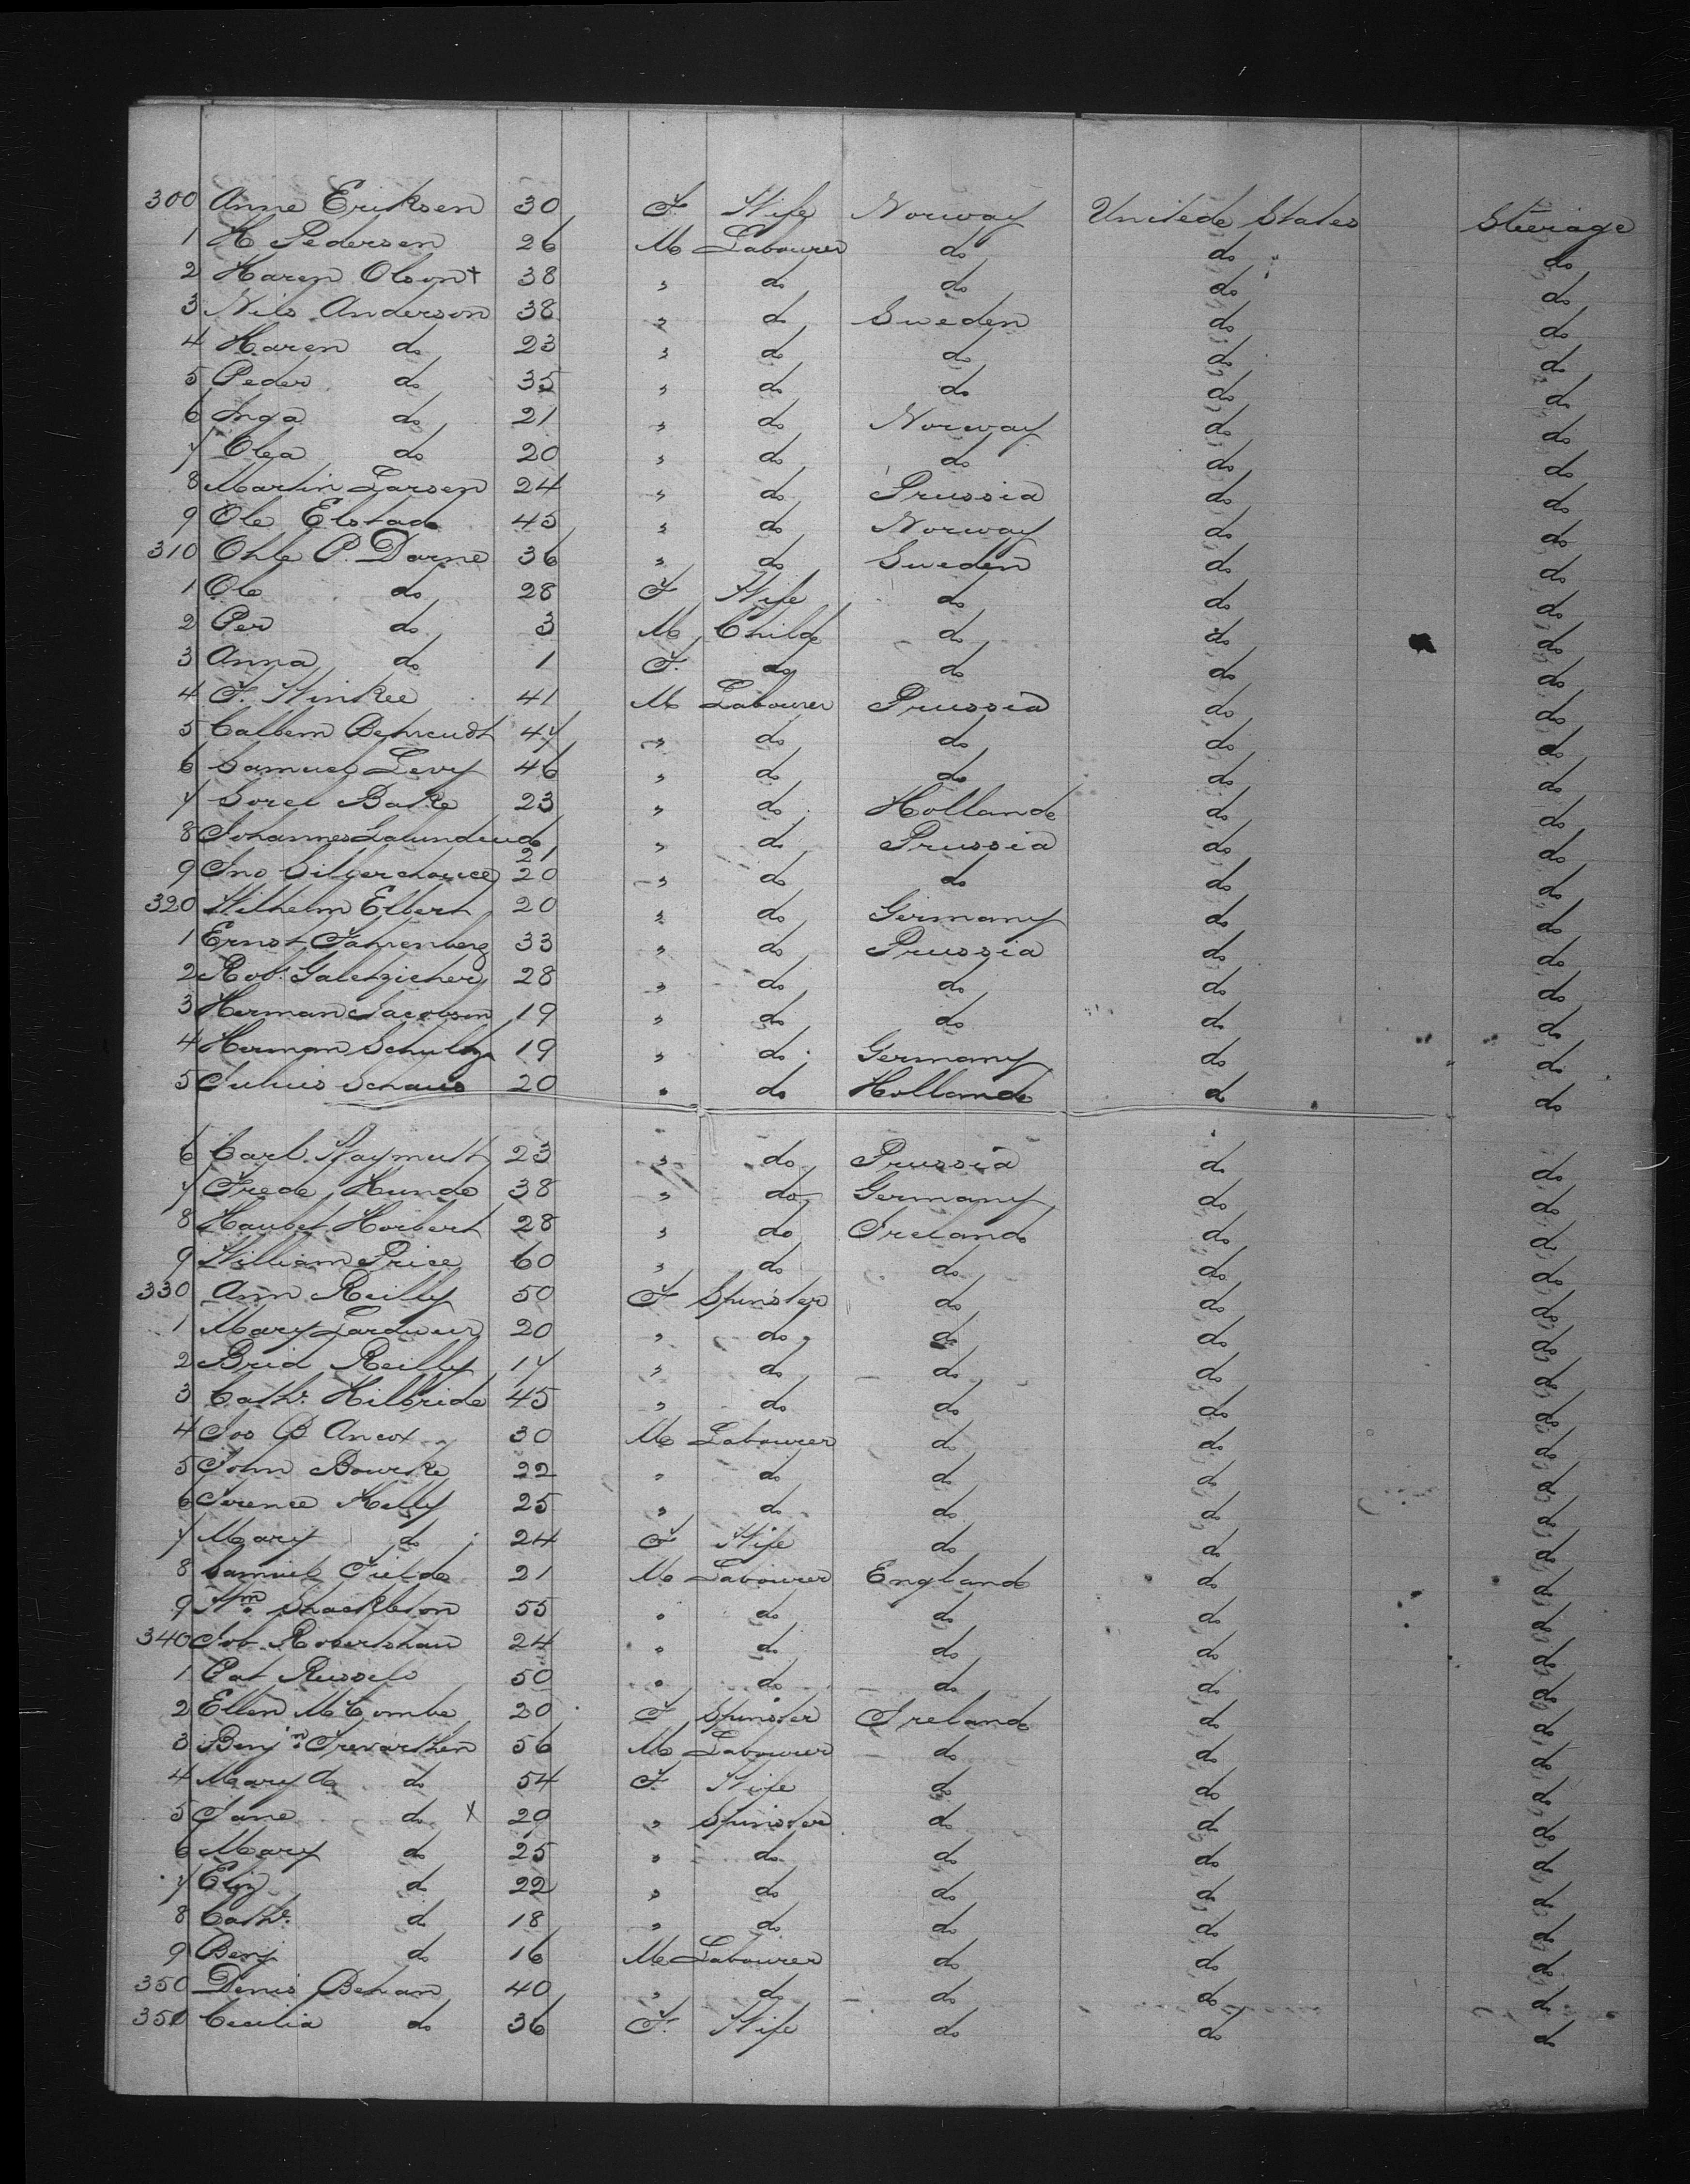 300 Anne Eriksen 30 F Wife Norway United States Steerage
1 H Pedersen 26 M Labourer do do do
2 Karen Olson + 38 " do do do do
3 Nils Anderson 38 " do Sweden do do
4 Karen do 23 " do do do do
5 Peder do 35 " do do do do
6 Inga do 21 " do Norway do do
7 Olea do 20 " do do do do
8 Martin Larsen 24 " do Prussia do do
9 Ole Elstad 45 " do Norway do do
310 Ohle P. Dorne 36 " do Sweden do do
1 Ole do 28 F Wife do do do
2 Per do 3 M Child do do do
3 Anna do 1 F. do do do do
4 F. Winkee 41 M Labourer Prussia do do
5 Behrendt 47 " do do do do
6 Samuel Levy 46 " do do do do
7 Bake 23 " do Holland do do
8 Johannes 21 " do Prussia do do
9 Jno 20 " do do do do
320 Wilhelm Elbert 20 " do Germany do do
1 Ernst Fahrenberg 33 " do Prussia do do
2 Rob. 28 " do do do do
3 Herman Jacobson 19 " do do do do
4 Herman Schultz 19 " do Germany do do
5 Julius Schaus 20 " do Holland do do
6 Carl 23 " do Prussia do do
7 Fred Hunde 38 " do Germany do do
8 Horbert 28 " do Ireland do do
9 William Price 60 " do do do do
330 Ann Reilly 50 F Spinster do do do
1 Mary 20 " do do do do
2 Brid Reilly 17 " do do do do
3 Cathe. Kilbride 45 " do do do do
4 Jos B Ancox 30 M Labourer do do do
5 John Bourke 22 " do do do do
6 Terence Kelly 25 " do do do do
7 Mary do 24 F Wife do do do
8 Samuel Field 21 M Labourer England do do
9 Wm. Shackleton 55 " do do do do
340 Job Robertshaw 24 " do do do do
1 Pat Russell 50 " do do do do
2 Ellen McCombe 20 F Spinster Ireland do do
3 Benjn. Trevarthen 56 M Labourer do do do
4 Mary A do 54 F Wife do do do
5 Jane do X 20 " Spinster do do do
6 Mary do 25 " do do do do
7 Eliz do 22 " do do do do
8 Cathe. do 18 " do do do do
9 Benj do 16 M Labourer do do do
350 Denis Behan 40 " do do do do
351 Cecilia do 36 F. Wife do do do